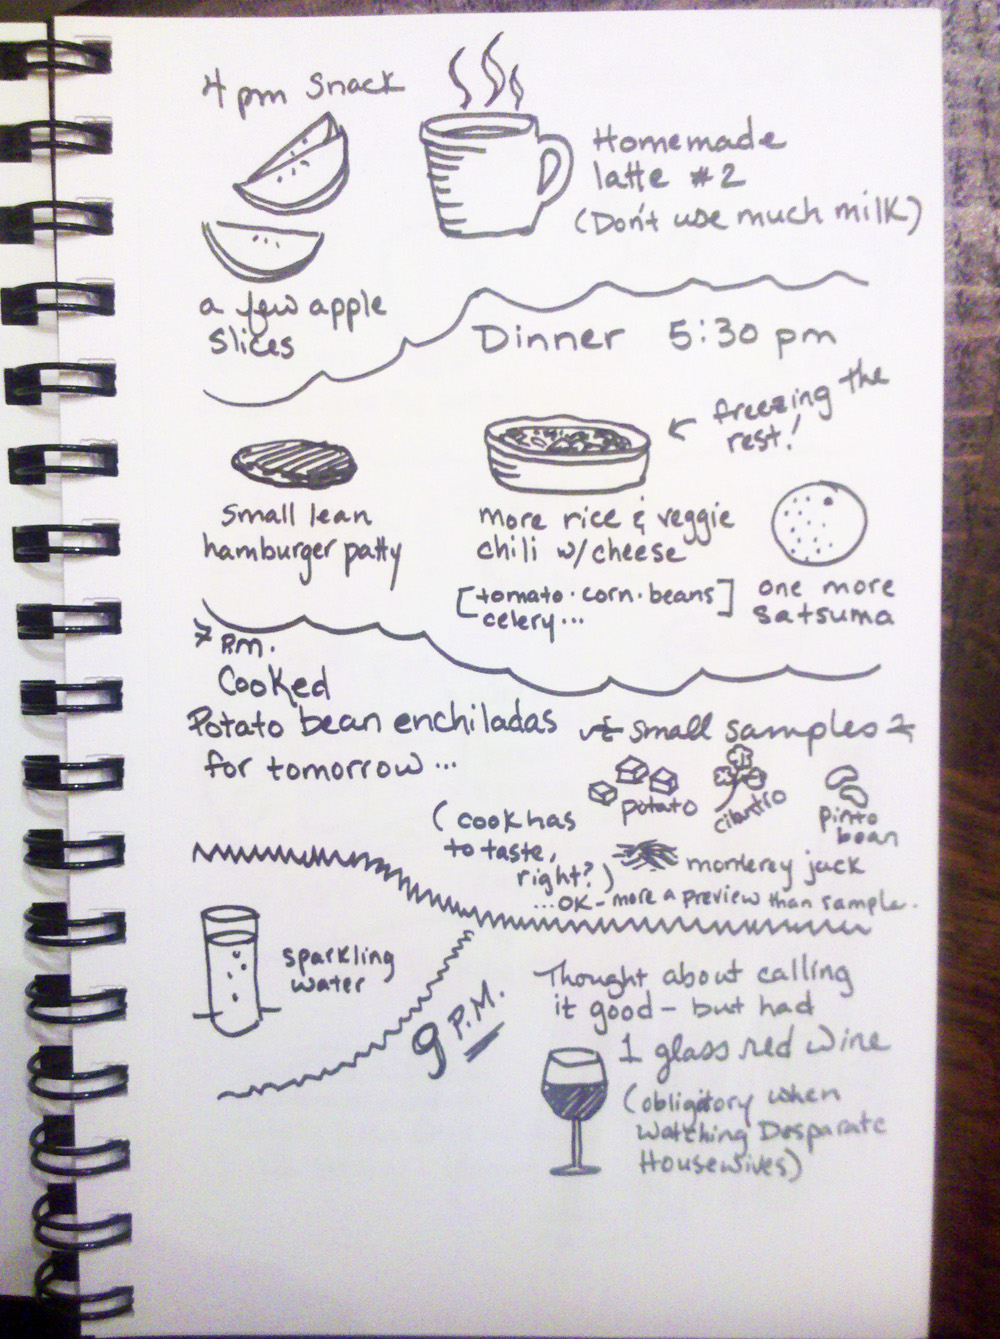 4 pm Snack
Homemade
latte #2
(Don't use much milk)
a few apple
slices
Dinner 5:30 pm
← freezing the
rest!
small lean
hamburger patty
more rice & veggie
chili w/cheese
[tomato · corn · beans
celery...]
one more
satsuma
7 P.M.
Cooked
Potato bean enchiladas
for tomorrow...
small samples
potato
cilantro
pinto
bean
monterey jack
(cook has
to taste,
right?)
...OK - more a preview than sample.
sparkling
water
9 P.M.
Thought about calling
it good - but had
1 glass red wine
(obligatory when
watching Desparate
Housewives)